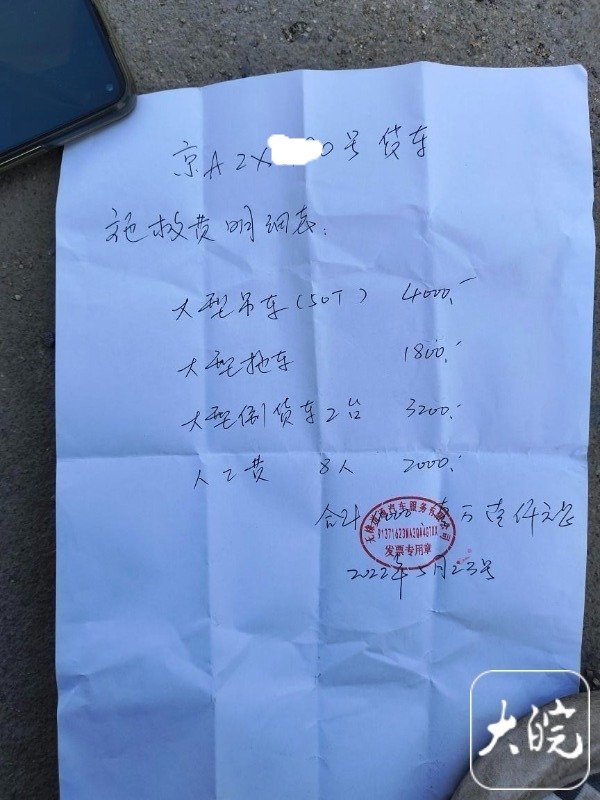 京A2X 0号货车
施救费明细表:
大型吊车(50T) 4000.-
大型拖车 1800.-
大型倒货车2台 3200.-
人工费 8人 2000.-
合计 壹万壹仟元正
汽车服务有限公司
发票专用章
2022年5月23号
大皖